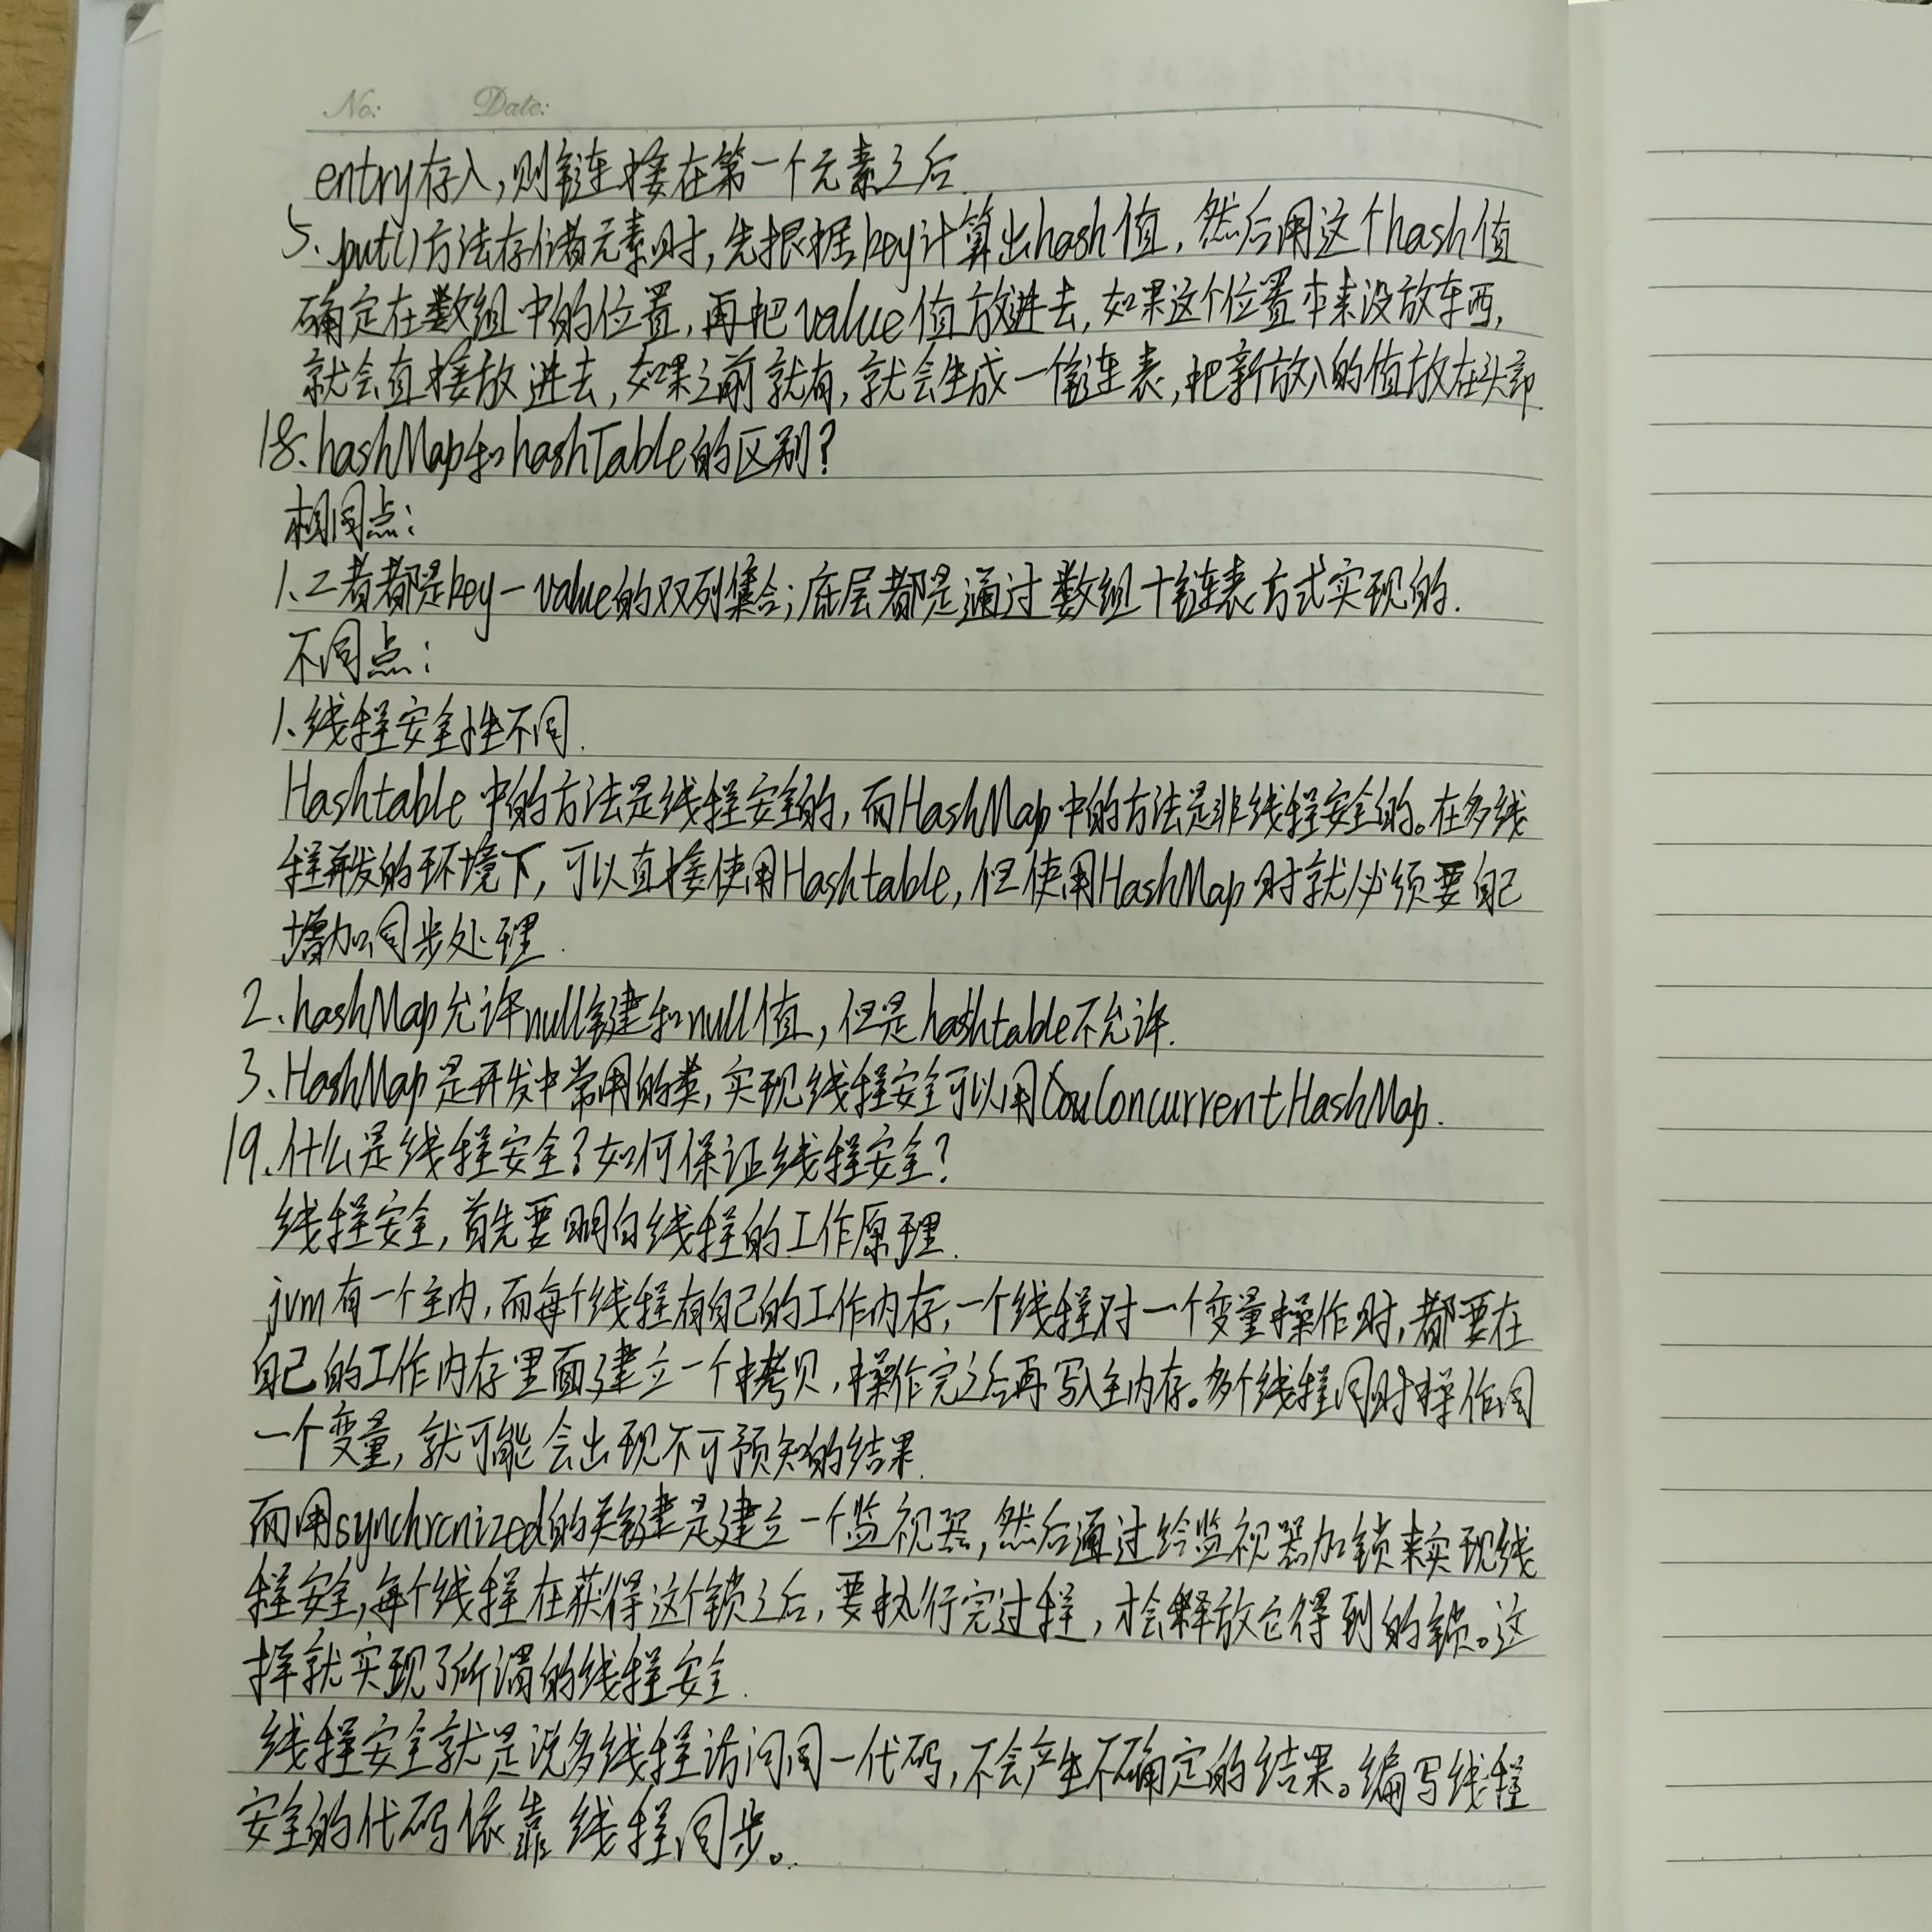 No: Date:
entry存入,则链连接在第一个元素之后.
5、put()方法存储者元素时,先根据key计算出hash值,然后用这个hash值
确定在数组中的位置,再把value值放进去,如果这个位置本来没放东西,
就会直接放进去,如果之前就有,就会生成一链连表,把新放入的值放在头部
18、hashMap和hashTable的区别?
相同点:
1、二者都是key-value的双列集合;底层都是通过数组+链表方式实现的.
不同点:
1、线程安全性不同.
Hashtable中的方法是线程安全的,而HashMap中的方法是非线程安全的。在多线
程并发的环境下,可以直接使用Hashtable,但使用HashMap时就必须要自己
增加同步处理.
2、hashMap允许null键和null值,但是hashtable不允许.
3、HashMap是开发中常用的类,实现线程安全可以用ConcurrentHashMap.
19.什么是线程安全?如何保证线程安全?
线程安全,首先要明白线程的工作原理.
jvm有一个主内,而每个线程有自己的工作内存,一个线程对一个变量操作时,都要在
自己的工作内存里面建立一个拷贝,操作完之后再写入主内存。多个线程同时操作同
一个变量,就可能会出现不可预知的结果.
而用synchrcnized的关键是建立一个监视器,然后通过给监视器加锁来实现线
程安全,每个线程在获得这个锁之后,要执行完过程,才会释放它得到的锁。这
样就实现了所谓的线程安全.
线程安全就是说多线程访问同一代码,不会产生不确定的结果。编写线程
安全的代码依靠线程同步。